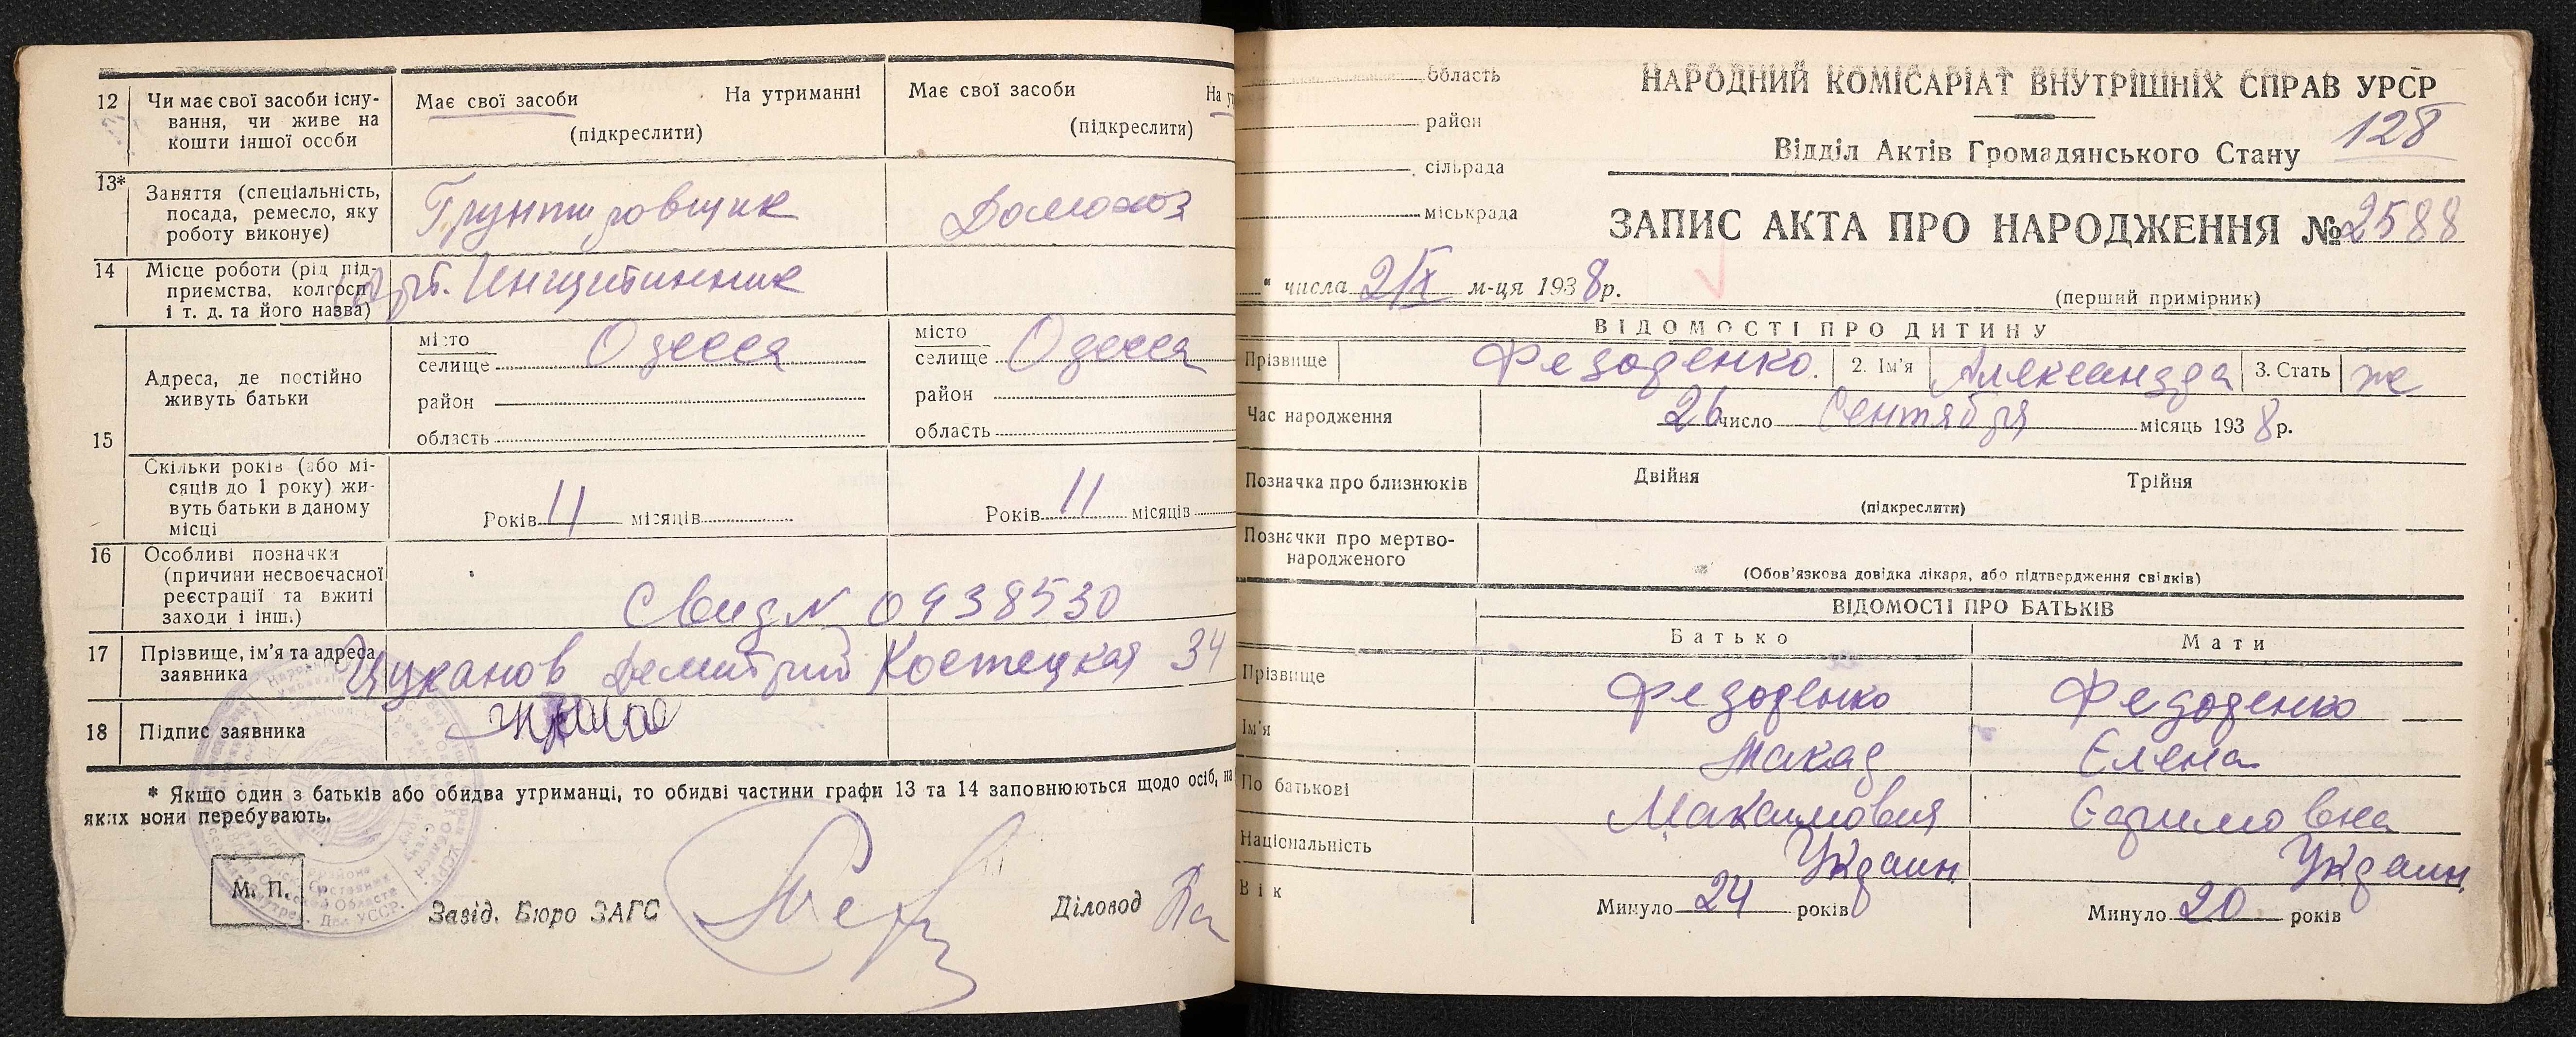 12 Чи має свої засоби існу-
вання, чи живе на
кошти іншої особи
Має свої засоби На утриманні
(підкреслити)
Має свої засоби На
(підкреслити)
13* Заняття (спеціальність,
посада, ремесло, яку
роботу виконує)
Грунтировщик
Домохоз
14 Місце роботи (рід під-
приємства, колгосп
і т. д. та його назва)
Арт.
15 Адреса, де постійно
живуть батьки
місто
селище Одесса
район
область
місто
селище Одесса
район
область
Скільки років (або мі-
сяців до 1 року) жи-
вуть батьки в даному
місці
Років 11 місяців
Років 11 місяців
16 Особливі позначки
(причини несвоєчасної
реєстрації та вжиті
заходи і інш.)
Свид № 0938530
17 Прізвище, ім'я та адреса
заявника
Цуканов Демитрий Костецкая 34
18 Підпис заявника
* Якщо один з батьків або обидва утриманці, то обидві частини графи 13 та 14 заповнюються щодо осіб, на
яких вони перебувають.
М. П.
Завід. Бюро ЗАГС
Діловод
область
район
сільрада
міськрада
НАРОДНИЙ КОМІСАРІАТ ВНУТРІШНІХ СПРАВ УРСР
Відділ Актів Громадянського Стану
128
ЗАПИС АКТА ПРО НАРОДЖЕННЯ № 2588
" числа 2/X м-ця 1938 р.
(перший примірник)
ВІДОМОСТІ ПРО ДИТИНУ
Прізвище Федоренко. 2. Ім'я Александра 3. Стать же
Час народження 26 число Сентября місяць 1938 р.
Позначка про близнюків Двійня Трійня
(підкреслити)
Позначки про мертво-
народженого
(Обов'язкова довідка лікаря, або підтвердження свідків)
ВІДОМОСТІ ПРО БАТЬКІВ
Батько Мати
Прізвище Федоренко Федоренко
Ім'я Макар Елена
По батькові Максимович Ефимовна
Національність Украин. Украин.
Вік Минуло 24 років Минуло 20 років